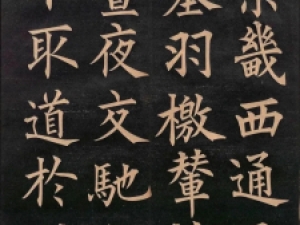 京畿西通
羽檄輦
晝夜交馳
取道於